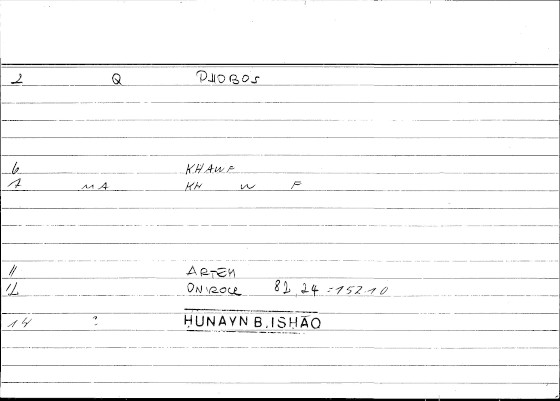 2 Q PHOBOS
6 KHAWF
7 MA KH W F
11 ARTEM
12 ONIROCR 82,24 = 152 10
14 ? ḤUNAYN B. ISḤĀQ